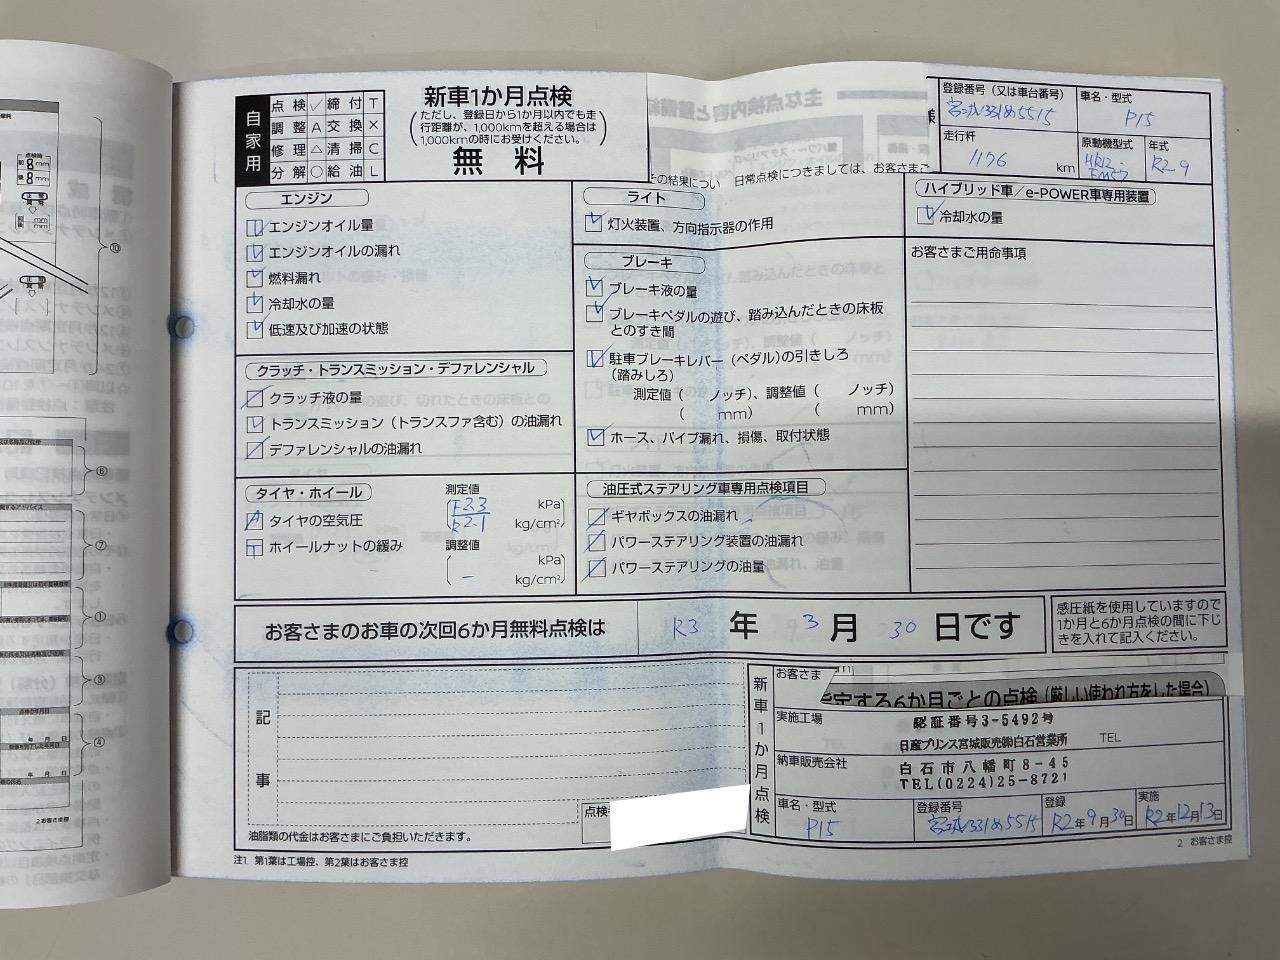 自家用
点検 ✓ 締付 T
調整 A 交換 ×
修理 △ 清掃 C
分解 ○ 給油 L
新車1か月点検
(ただし、登録日から1か月以内でも走
行距離が、1,000kmを超える場合は
1,000kmの時にお受けください。)
無料
主な点検内容と整備
その結果につい 日常点検につきましては、お客さまご
登録番号(又は車台番号)
宮城331め5515
車名・型式
P15
走行粁
1176 km
原動機型式
HR12-
EM57
年式
R2-9
エンジン
エンジンオイル量
エンジンオイルの漏れ
燃料漏れ
冷却水の量
低速及び加速の状態
クラッチ・トランスミッション・デファレンシャル
クラッチ液の量
トランスミッション(トランスファ含む)の油漏れ
デファレンシャルの油漏れ
タイヤ・ホイール
測定値
タイヤの空気圧
F2.3
R2.1
kPa
kg/cm²
ホイールナットの緩み
調整値
kPa
kg/cm²
ー
ライト
灯火装置、方向指示器の作用
ブレーキ
ブレーキ液の量
ブレーキペダルの遊び、踏み込んだときの床板
とのすき間
駐車ブレーキレバー(ペダル)の引きしろ
(踏みしろ)
測定値( ノッチ)、調整値( ノッチ)
( mm) ( mm)
ホース、パイプ漏れ、損傷、取付状態
油圧式ステアリング車専用点検項目
ギヤボックスの油漏れ
パワーステアリング装置の油漏れ
パワーステアリングの油量
ハイブリッド車/e-POWER車専用装置
冷却水の量
お客さまご用命事項
お客さまのお車の次回6か月無料点検は R3 年 3 月 30 日です
感圧紙を使用していますので
1か月と6か月点検の間に下じ
きを入れて記入ください。
記事
油脂類の代金はお客さまにご負担いただきます。
点検
新車1か月点検
お客さま
定する6か月ごとの点検(厳しい使われ方をした場合)
実施工場
認証番号3-5492号
日産プリンス宮城販売㈱白石営業所
TEL
納車販売会社
白石市八幡町8-45
TEL(0224)25-8721
車名・型式
P15
登録番号
宮城331め5515
登録
R2年9月30日
実施
R2年12月13日
注1. 第1葉は工場控、第2葉はお客さま控
2 お客さま控
点検時
前 8 mm
後 8 mm
⑩
⑥
⑦
①
③
④
年 月 日
年 月 日
2 お客さま控